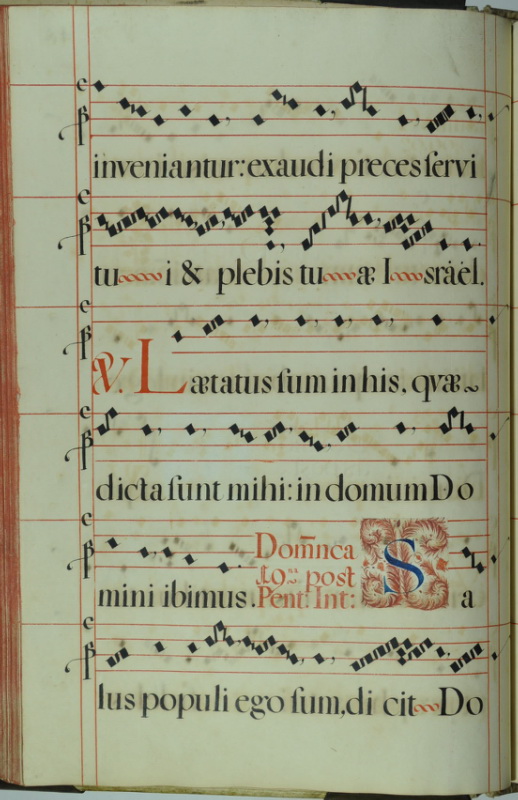 inveniantur: exaudi preces servi
tu i & plebis tu æ I sräel.
℣. Lætatus sum in his, qvæ
dicta sunt mihi: in domum Do
mini ibimus. Dom̄nca
post
Pent: Int: Sa
lus populi ego sum, di cit Do